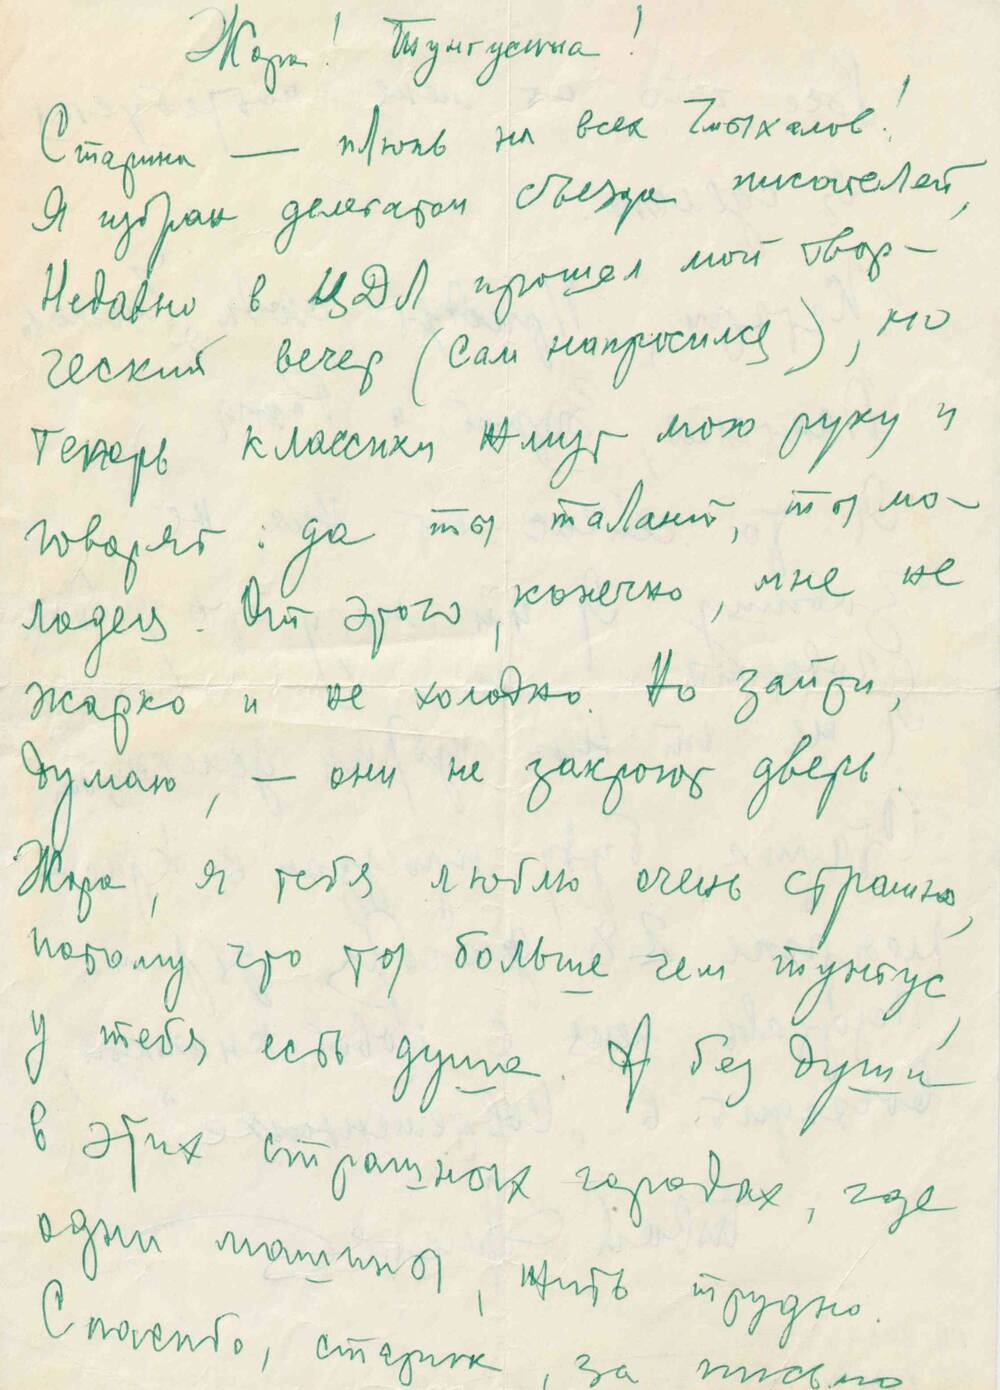 Жора! Тунгусина!
Старина — плюнь на всех Чмыхалов!
Я избран делегатом съезда писателей,
Недавно в ЦДЛ прошел мой твор-
ческий вечер (сам напросился), но
теперь классики жмут мою руку и
говорят: да ты талант, ты мо-
лодец. От этого, конечно, мне не
жарко и не холодно. Но зайди,
думаю, — они не закроют дверь.
Жора, я тебя люблю очень страшно,
потому что ты больше чем тунгус,
у тебя есть душа. А без души
в этих страшных городах, где
одни машины, жить трудно.
Спасибо, старик, за письмо